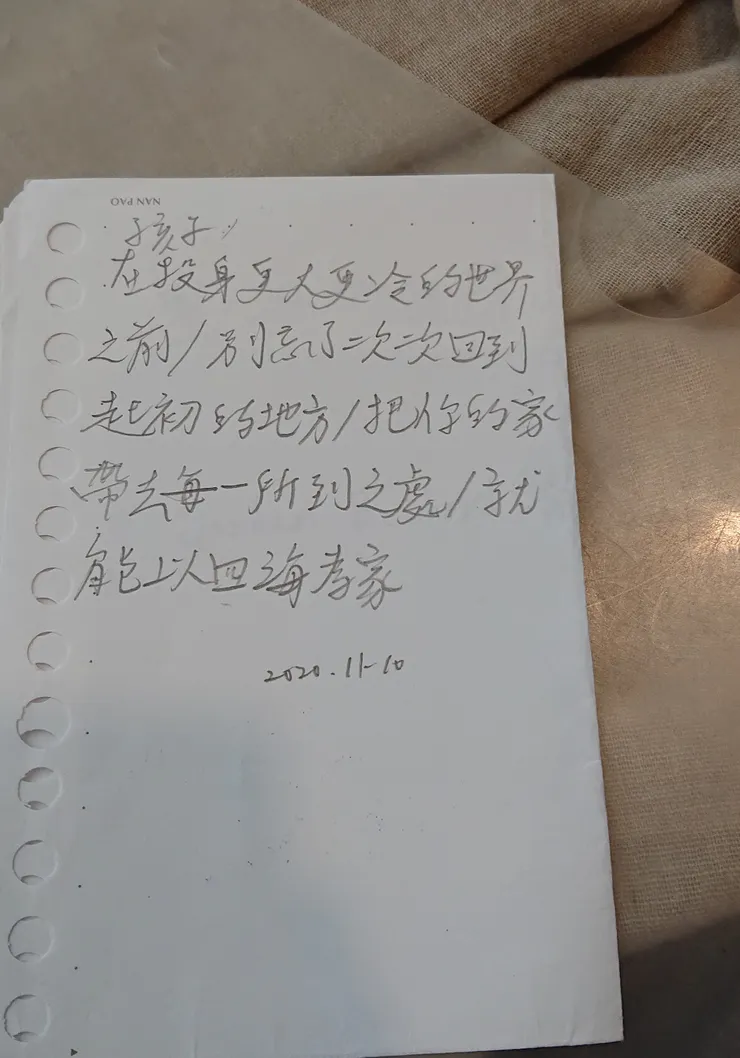 NAN PAO
孩子/
在投身更大更冷的世界
之前/別忘了一次一次回到
起初的地方/把你的家
帶去每一所到之處/就
能以四海為家
2020.11-10